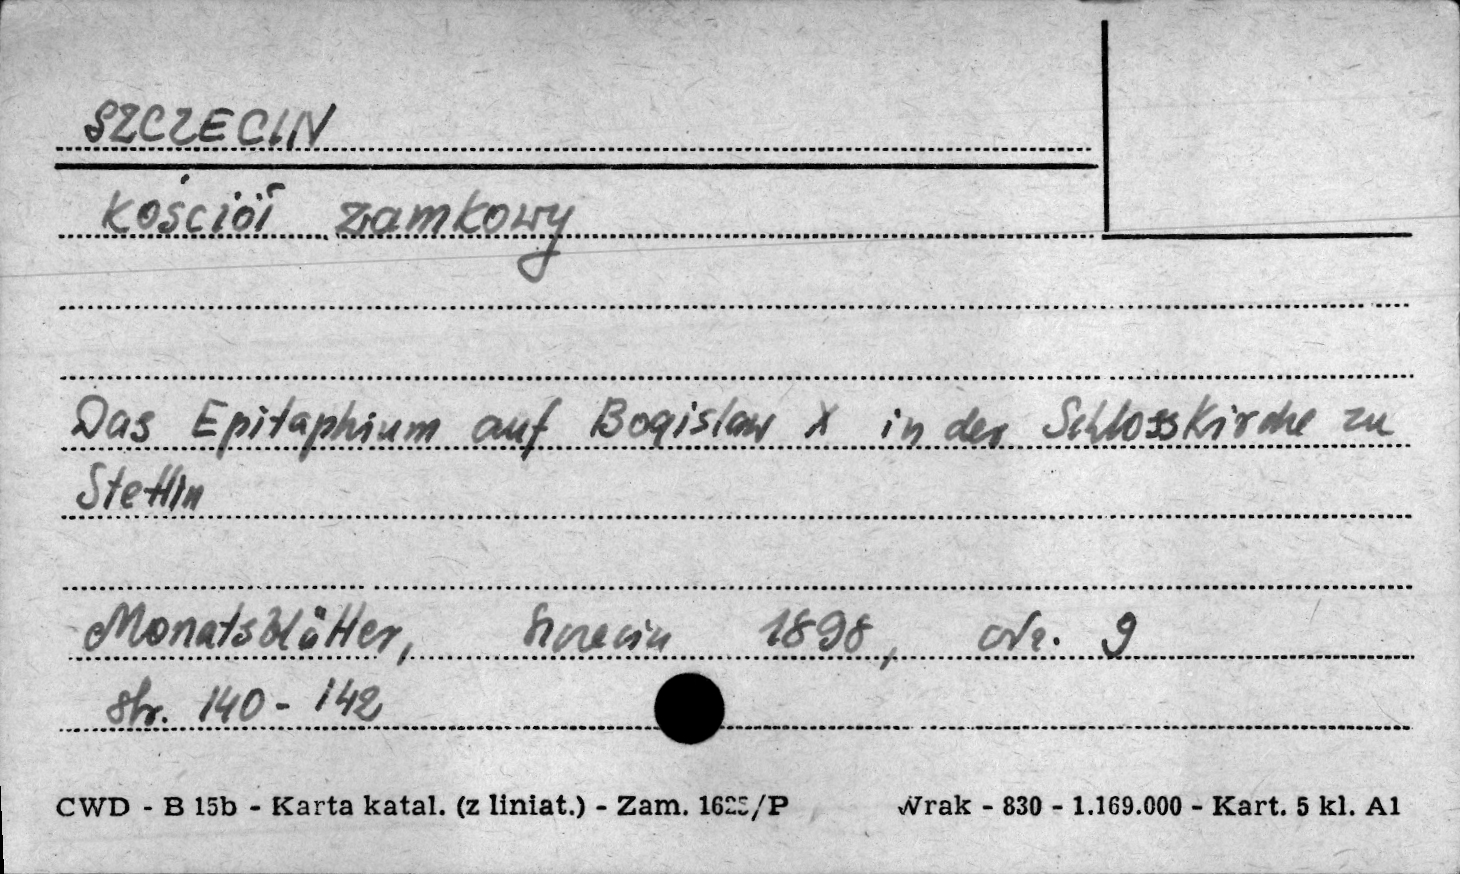 SZCZECIN
kościół zamkowy
Das Epitaphium auf Bogislaw X in der Schlosskirche zu
Stettin
Monatsblätter, Szczecin 1898, Nr. 9
str. 140-142
CWD - B 15b - Karta katal. (z liniat.) - Zam. 1625/P Wrak - 830 - 1.169.000 - Kart. 5 kl. A1